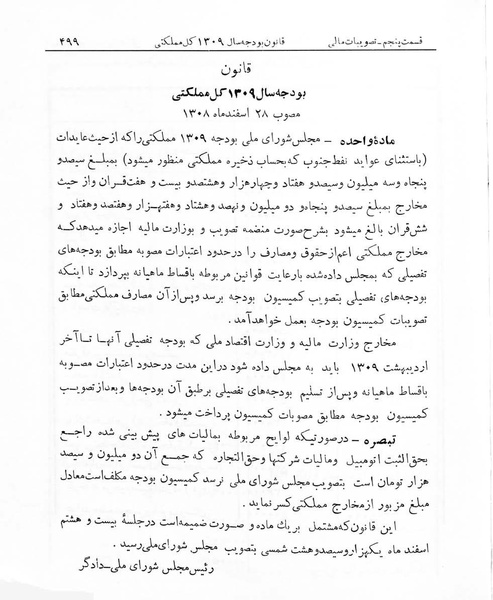 قسمت پنجم - تصویبات مالی قانون بودجه سال ۱۳۰۹ کل مملکتی ۴۹۹
قانون
بودجه سال ۱۳۰۹ کل مملکتی
مصوب ۲۸ اسفند ماه ۱۳۰۸
ماده واحده - مجلس شورای ملی بودجه ۱۳۰۹ مملکتی را که از حیث عایدات
(باستثنای عواید نفط جنوب که بحساب ذخیره مملکتی منظور میشود) بمبلغ سیصدو
پنجاه وسه میلیون وسیصدو هفتاد وچهار هزار وهشتصدو بیست و هفت قران واز حیث
مخارج بمبلغ سیصدو پنجاه و دو میلیون و نهصد وهشتاد وهفتهزار وهفتصد وهفتاد و
شش قران بالغ میشود بشرح صورت منضمه تصویب و بوزارت مالیه اجازه میدهد که
مخارج مملکتی اعم از حقوق ومصارف را در حدود اعتبارات مصوبه مطابق بودجه های
تفصیلی که بمجلس داده شده با رعایت قوانین مربوطه باقساط ماهیانه بپردازد تا اینکه
بودجه های تفصیلی بتصویب کمیسیون بودجه برسد وپس از آن مصارف مملکتی مطابق
تصویبات کمیسیون بودجه بعمل خواهد آمد.
مخارج وزارت مالیه و وزارت اقتصاد ملی که بودجه تفصیلی آنها تا آخر
اردیبهشت ۱۳۰۹ باید به مجلس داده شود در این مدت در حدود اعتبارات مصوبه
باقساط ماهیانه و پس از تسلیم بودجه های تفصیلی بر طبق آن بودجه ها و بعد از تصویب
کمیسیون بودجه مطابق مصوبات کمیسیون پرداخت میشود.
تبصره - در صورتیکه لوایح مربوطه بمالیات های پیش بینی شده راجع
بحق الثبت اتومبیل ومالیات شرکتها وحق التجاره که جمع آن دو میلیون و سیصد
هزار تومان است بتصویب مجلس شورای ملی نرسد کمیسیون بودجه مکلف است معادل
مبلغ مزبور از مخارج مملکتی کسر نماید.
این قانون که مشتمل بر یک ماده و صورت ضمیمه است در جلسهٔ بیست و هشتم
اسفند ماه یکهزار و سیصد و هشت شمسی بتصویب مجلس شورای ملی رسید.
رئیس مجلس شورای ملی - دادگر